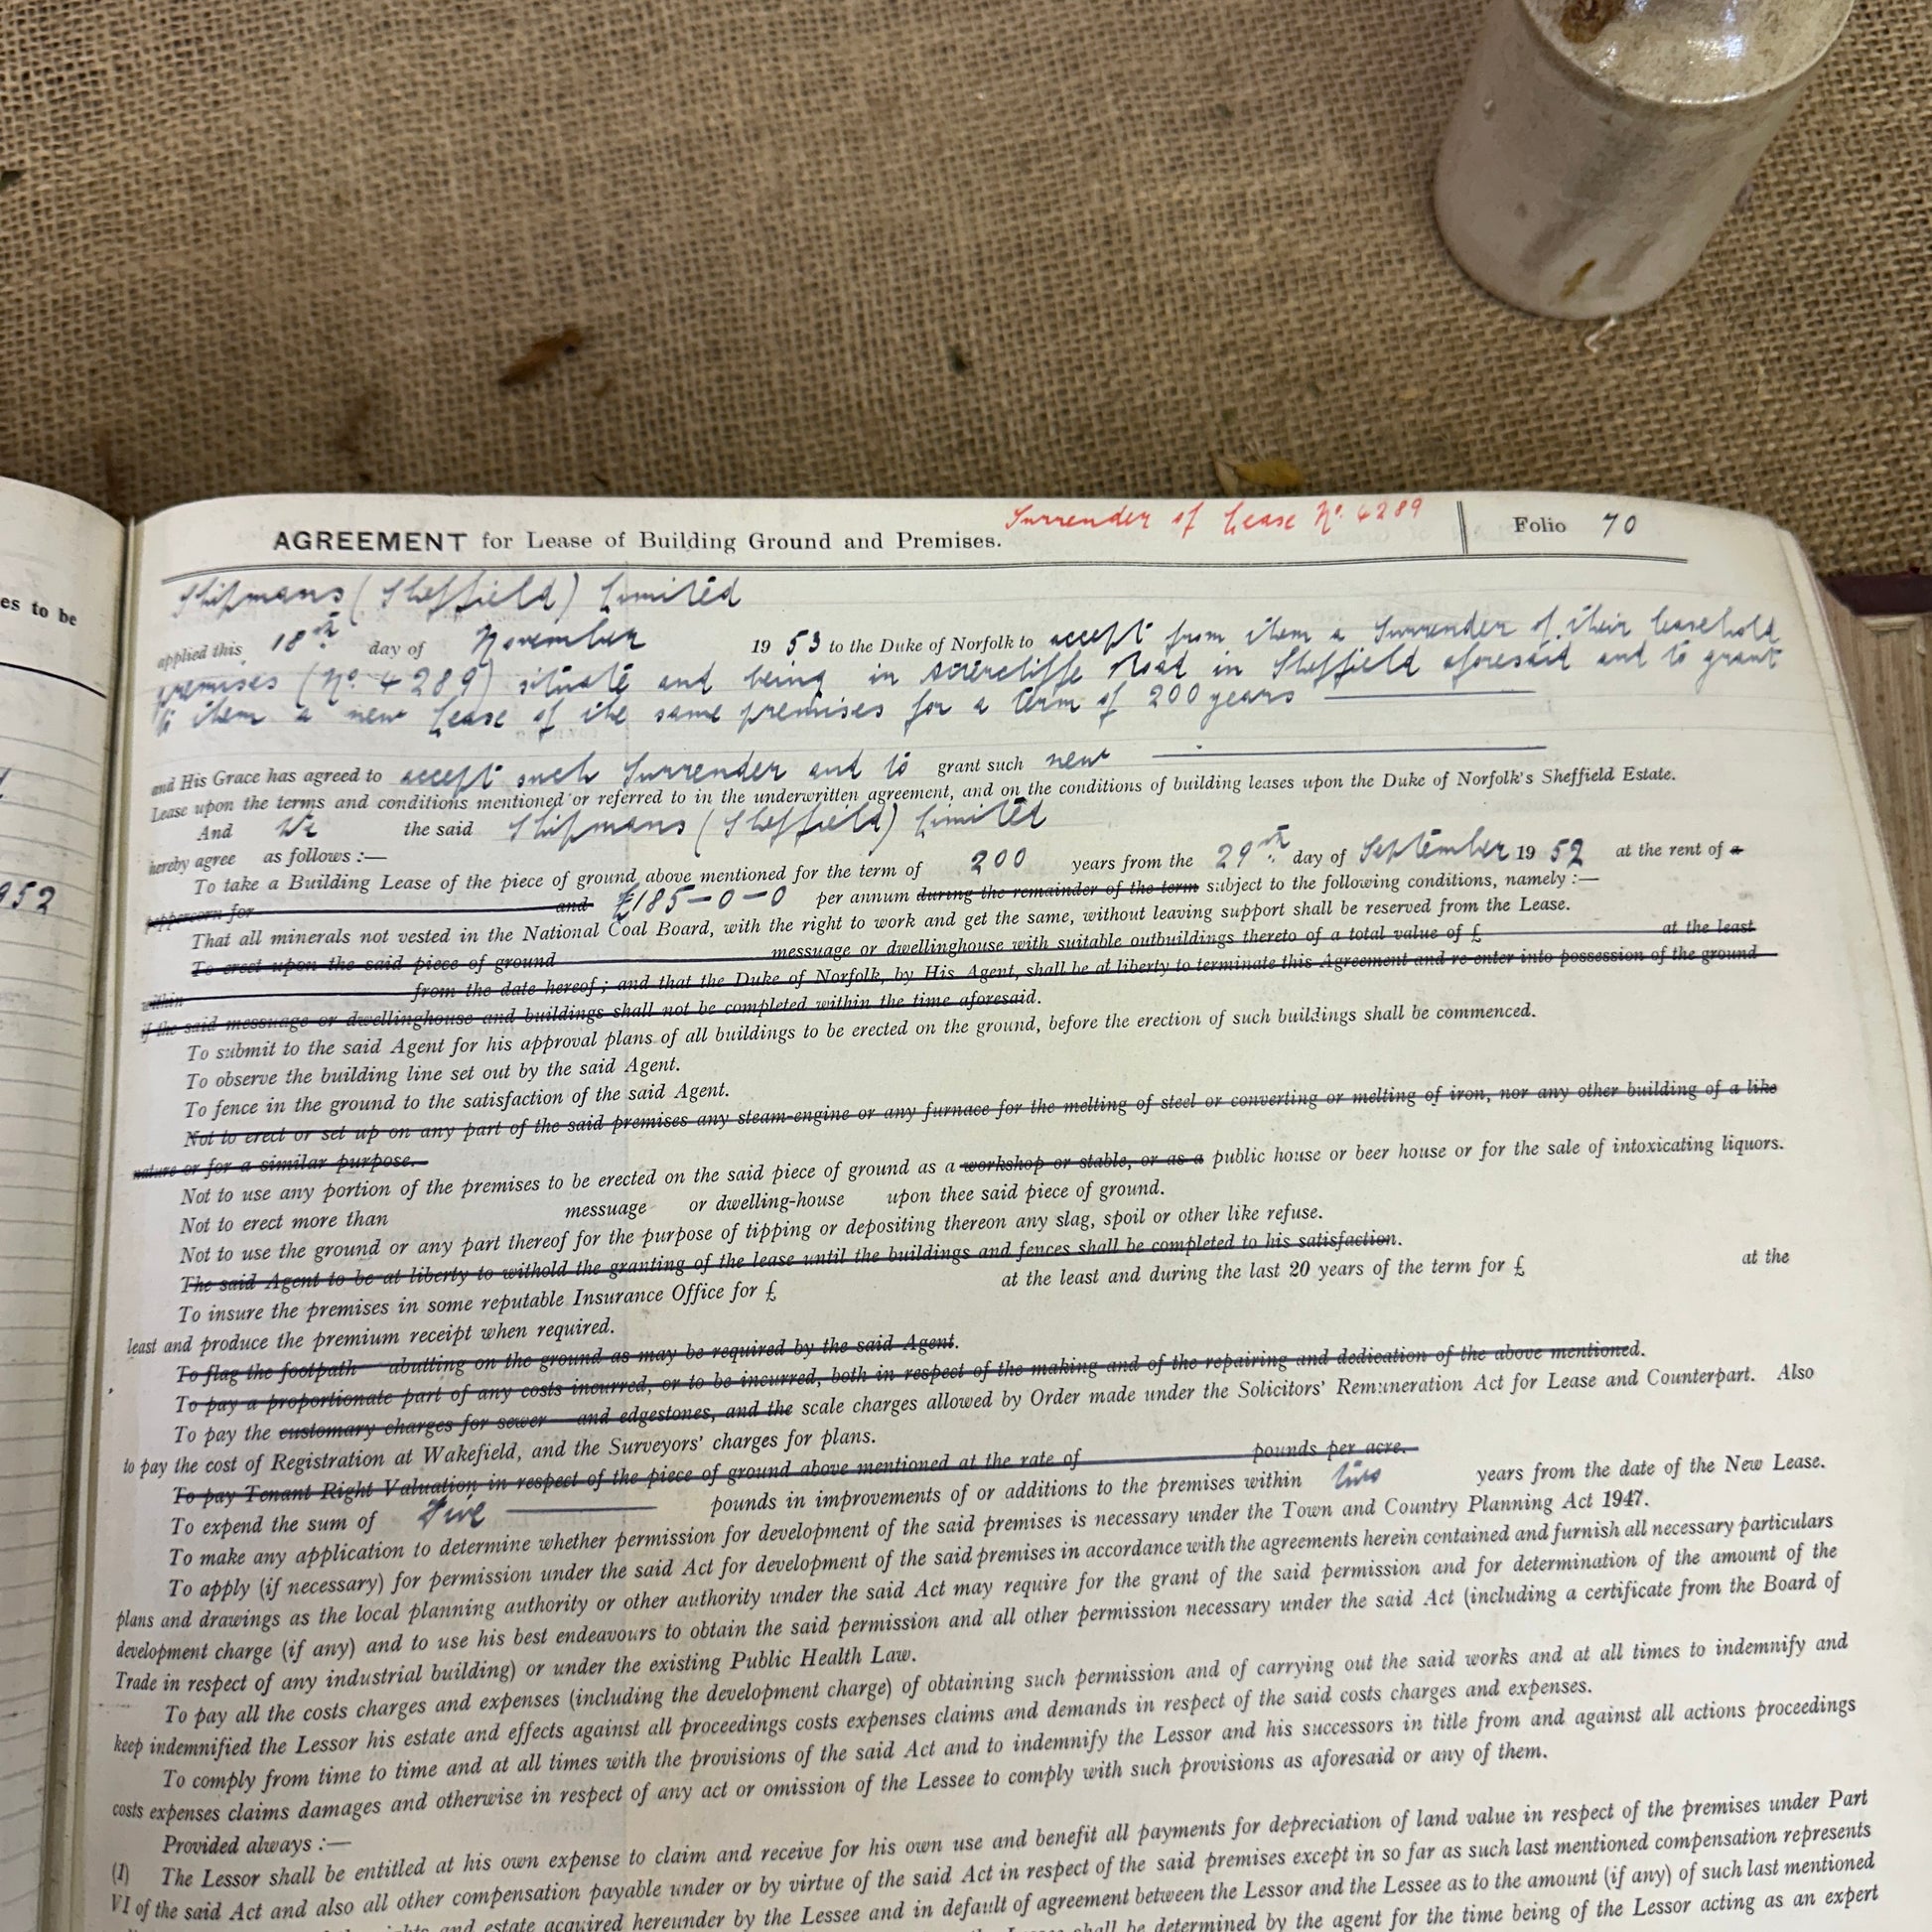 Surrender of Lease No. 4289
AGREEMENT for Lease of Building Ground and Premises. Folio 70
Shipmans (Sheffield) Limited
applied this 18th day of November 1953 to the Duke of Norfolk to accept from them a Surrender of their leasehold
premises (No. 4289) situate and being in Scarcliffe Road in Sheffield aforesaid and to grant
to them a new Lease of the same premises for a term of 200 years
and His Grace has agreed to accept such Surrender and to grant such new
Lease upon the terms and conditions mentioned or referred to in the underwritten agreement, and on the conditions of building leases upon the Duke of Norfolk's Sheffield Estate.
And We the said Shipmans (Sheffield) Limited
hereby agree as follows :—
To take a Building Lease of the piece of ground above mentioned for the term of 200 years from the 29th day of September 1952 at the rent of a
peppercorn for and £185-0-0 per annum during the remainder of the term subject to the following conditions, namely :—
That all minerals not vested in the National Coal Board, with the right to work and get the same, without leaving support shall be reserved from the Lease.
To erect upon the said piece of ground messuage or dwellinghouse with suitable outbuildings thereto of a total value of £ at the least
within from the date hereof ; and that the Duke of Norfolk, by His Agent, shall be at liberty to terminate this Agreement and re-enter into possession of the ground
if the said messuage or dwellinghouse and buildings shall not be completed within the time aforesaid.
To submit to the said Agent for his approval plans of all buildings to be erected on the ground, before the erection of such buildings shall be commenced.
To observe the building line set out by the said Agent.
To fence in the ground to the satisfaction of the said Agent.
Not to erect or set up on any part of the said premises any steam-engine or any furnace for the melting of steel or converting or melting of iron, nor any other building of a like
nature or for a similar purpose.
Not to use any portion of the premises to be erected on the said piece of ground as a workshop or stable, or as a public house or beer house or for the sale of intoxicating liquors.
Not to erect more than messuage or dwelling-house upon thee said piece of ground.
Not to use the ground or any part thereof for the purpose of tipping or depositing thereon any slag, spoil or other like refuse.
The said Agent to be at liberty to withold the granting of the lease until the buildings and fences shall be completed to his satisfaction.
To insure the premises in some reputable Insurance Office for £ at the least and during the last 20 years of the term for £ at the
least and produce the premium receipt when required.
To flag the footpath abutting on the ground as may be required by the said Agent.
To pay a proportionate part of any costs incurred, or to be incurred, both in respect of the making and of the repairing and dedication of the above mentioned.
To pay the customary charges for sewer and edgestones, and the scale charges allowed by Order made under the Solicitors' Remuneration Act for Lease and Counterpart. Also
to pay the cost of Registration at Wakefield, and the Surveyors' charges for plans.
To pay Tenant Right Valuation in respect of the piece of ground above mentioned at the rate of pounds per acre.
To expend the sum of Five pounds in improvements of or additions to the premises within two years from the date of the New Lease.
To make any application to determine whether permission for development of the said premises is necessary under the Town and Country Planning Act 1947.
To apply (if necessary) for permission under the said Act for development of the said premises in accordance with the agreements herein contained and furnish all necessary particulars
plans and drawings as the local planning authority or other authority under the said Act may require for the grant of the said permission and for determination of the amount of the
development charge (if any) and to use his best endeavours to obtain the said permission and all other permission necessary under the said Act (including a certificate from the Board of
Trade in respect of any industrial building) or under the existing Public Health Law.
To pay all the costs charges and expenses (including the development charge) of obtaining such permission and of carrying out the said works and at all times to indemnify and
keep indemnified the Lessor his estate and effects against all proceedings costs expenses claims and demands in respect of the said costs charges and expenses.
To comply from time to time and at all times with the provisions of the said Act and to indemnify the Lessor and his successors in title from and against all actions proceedings
costs expenses claims damages and otherwise in respect of any act or omission of the Lessee to comply with such provisions as aforesaid or any of them.
Provided always :—
(1) The Lessor shall be entitled at his own expense to claim and receive for his own use and benefit all payments for depreciation of land value in respect of the premises under Part
VI of the said Act and also all other compensation payable under or by virtue of the said Act in respect of the said premises except in so far as such last mentioned compensation represents
and estate acquired hereunder by the Lessee and in default of agreement between the Lessor and the Lessee as to the amount (if any) of such last mentioned
shall be determined by the agent for the time being of the Lessor acting as an expert
es to be
952